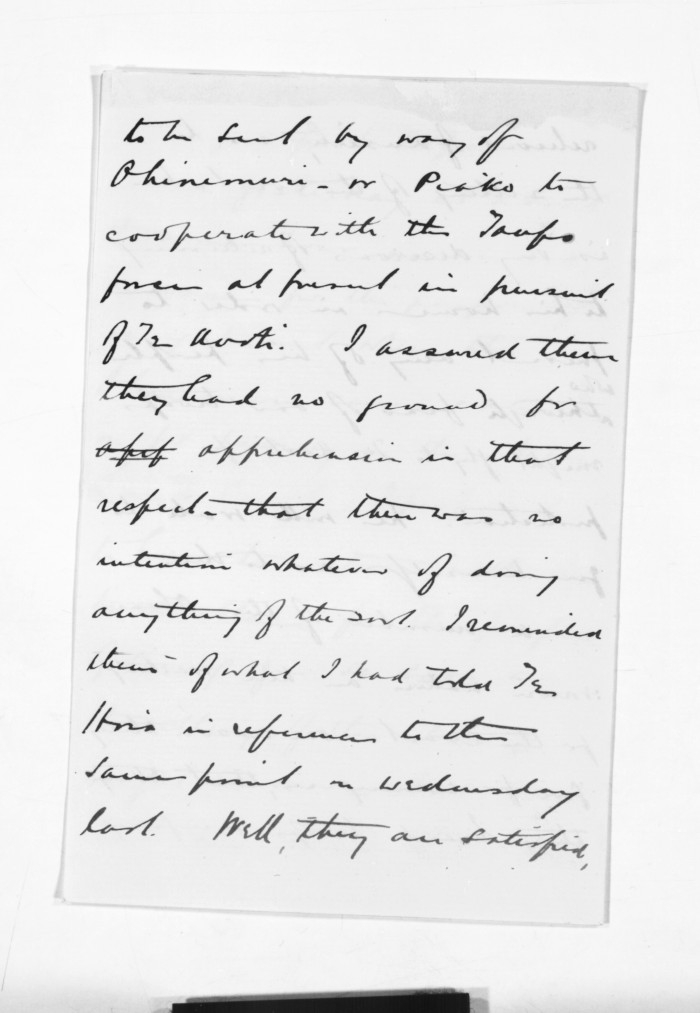 to be sent by way of
Ohinemuri - or Piako to
cooperate with the Taupo
force at present in pursuit
of Te Kooti. I assured them
they had no ground for
app apprehension in that
respect - that there was no
intention whatever of doing
anything of the sort. I reminded
them of what I had told Te
Hira in reference to the
same point on Wednesday
last. Well, they are satisfied,